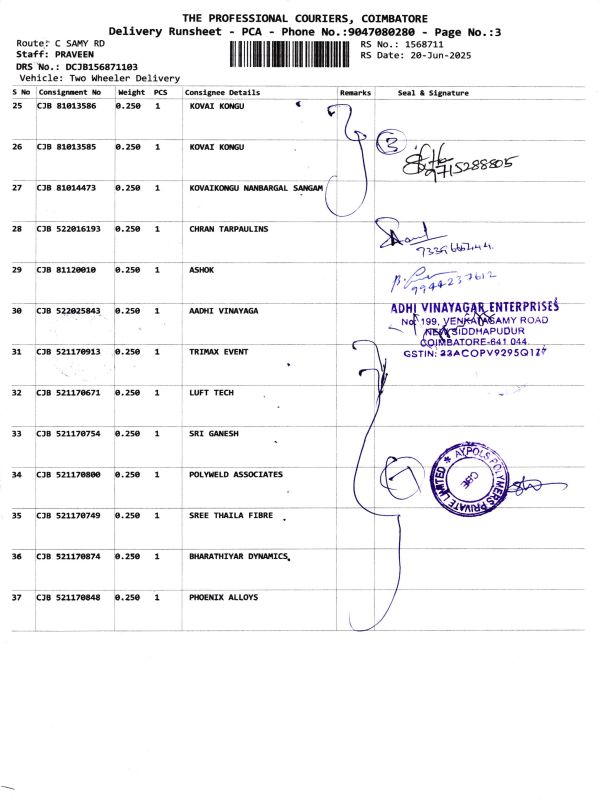 THE PROFESSIONAL COURIERS, COIMBATORE
Delivery Runsheet - PCA - Phone No.:9047080280 - Page No.:3
Route: C SAMY RD RS No.: 1568711
Staff: PRAVEEN RS Date: 20-Jun-2025
DRS No.: DCJB156871103
Vehicle: Two Wheeler Delivery
S No Consignment No Weight PCS Consignee Details Remarks Seal & Signature
25 CJB 81013586 0.250 1 KOVAI KONGU
26 CJB 81013585 0.250 1 KOVAI KONGU 3
9715288805
27 CJB 81014473 0.250 1 KOVAIKONGU NANBARGAL SANGAM
28 CJB 522016193 0.250 1 CHRAN TARPAULINS
29 CJB 81120010 0.250 1 ASHOK
9944237612
30 CJB 522025843 0.250 1 AADHI VINAYAGA
ADHI VINAYAGAR ENTERPRISES
No: 199, VENKATASAMY ROAD
NEW SIDDHAPUDUR
COIMBATORE-641 044.
GSTIN: 33ACOPV9295Q1Z
31 CJB 521170913 0.250 1 TRIMAX EVENT
32 CJB 521170671 0.250 1 LUFT TECH
33 CJB 521170754 0.250 1 SRI GANESH
34 CJB 521170800 0.250 1 POLYWELD ASSOCIATES 7
AYPOLS POLYMERS PRIVATE LIMITED
CBE
35 CJB 521170749 0.250 1 SREE THAILA FIBRE
36 CJB 521170874 0.250 1 BHARATHIYAR DYNAMICS
37 CJB 521170848 0.250 1 PHOENIX ALLOYS